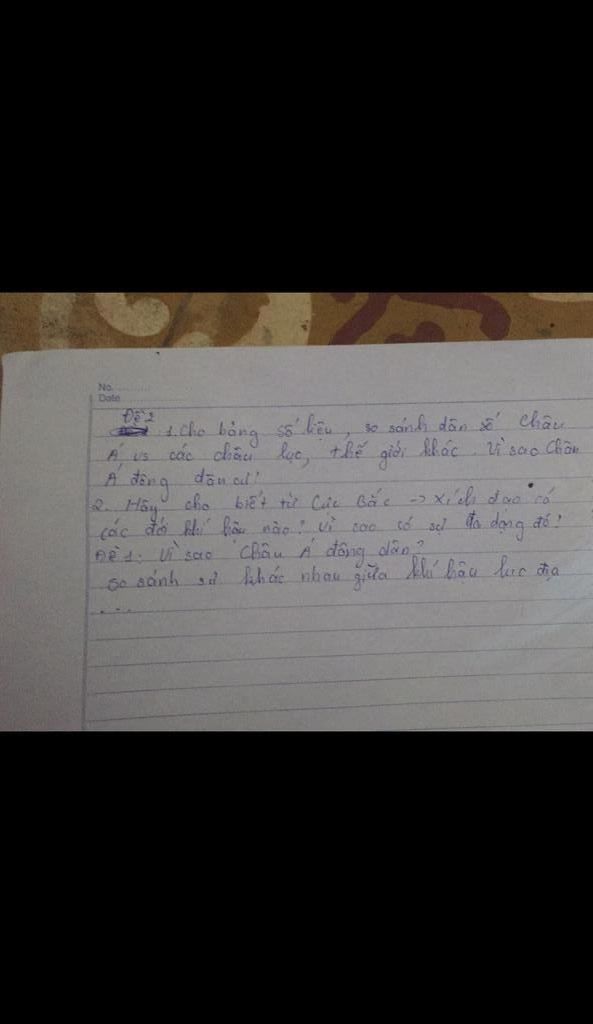 No. ............
Date ............
Đề 2
1. Cho bảng số liệu, so sánh dân số Châu
Á vs các châu lục, thế giới khác. Vì sao Châu
Á đông dân cư?
2. Hãy cho biết từ Cực Bắc -> Xích đạo có
các đới khí hậu nào? Vì sao có sự đa dạng đó?
Đề 1: Vì sao Châu Á đông dân?
so sánh sự khác nhau giữa khí hậu lục địa
....